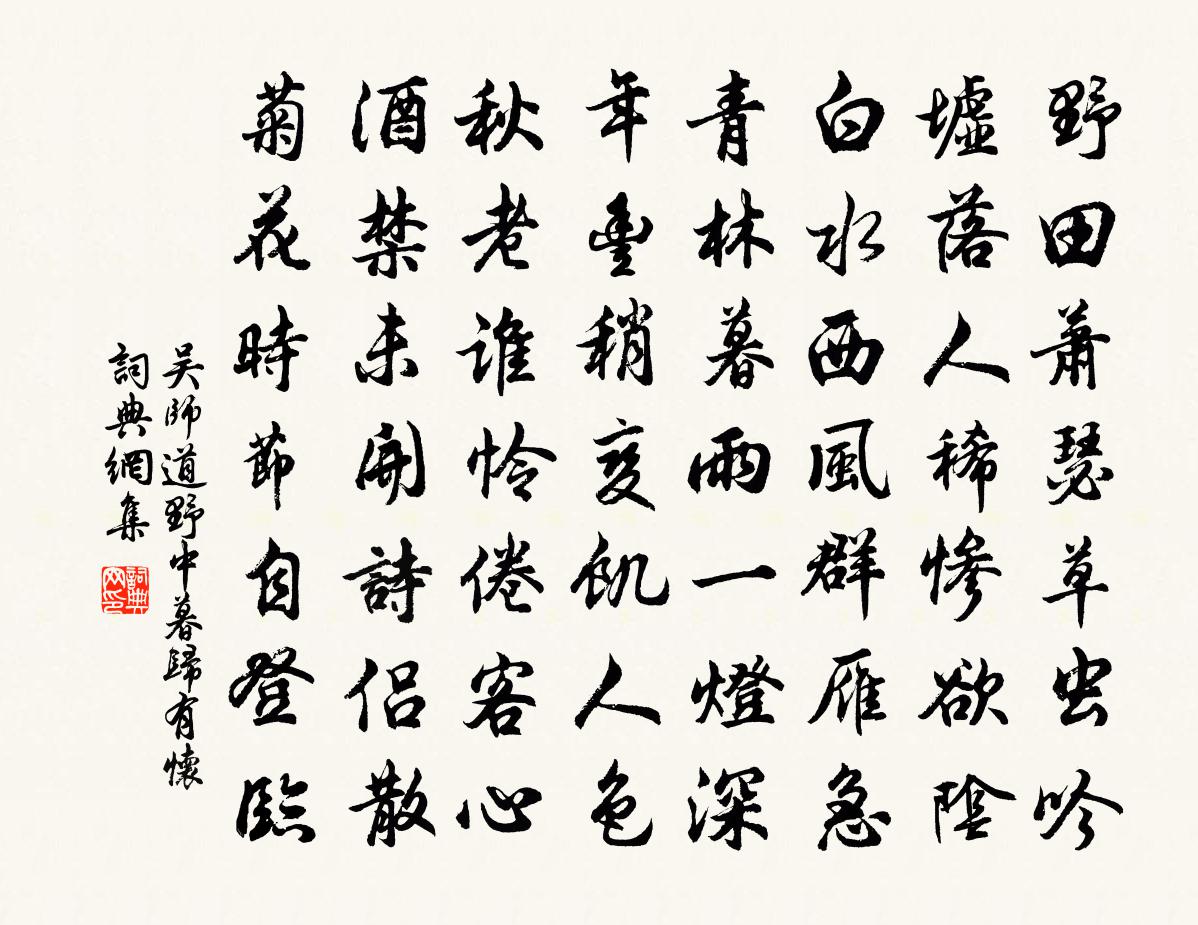 野田蕭瑟草虫吟
墟落人稀慘欲陰
白水西風群雁急
青林暮雨一燈深
年豐稍變飢人色
秋老誰怜倦客心
酒禁未開詩侶散
菊花時節自登臨
吴師道野中暮歸有懷
詞典網集
詞典